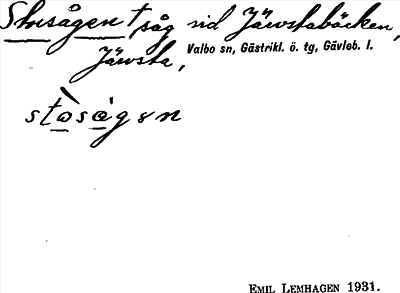 Storsågen † såg vid Järvstabäcken,
Järvsta, Valbo sn, Gästrikl. ö. tg, Gävleb. l.
EMIL LEMHAGEN 1931.